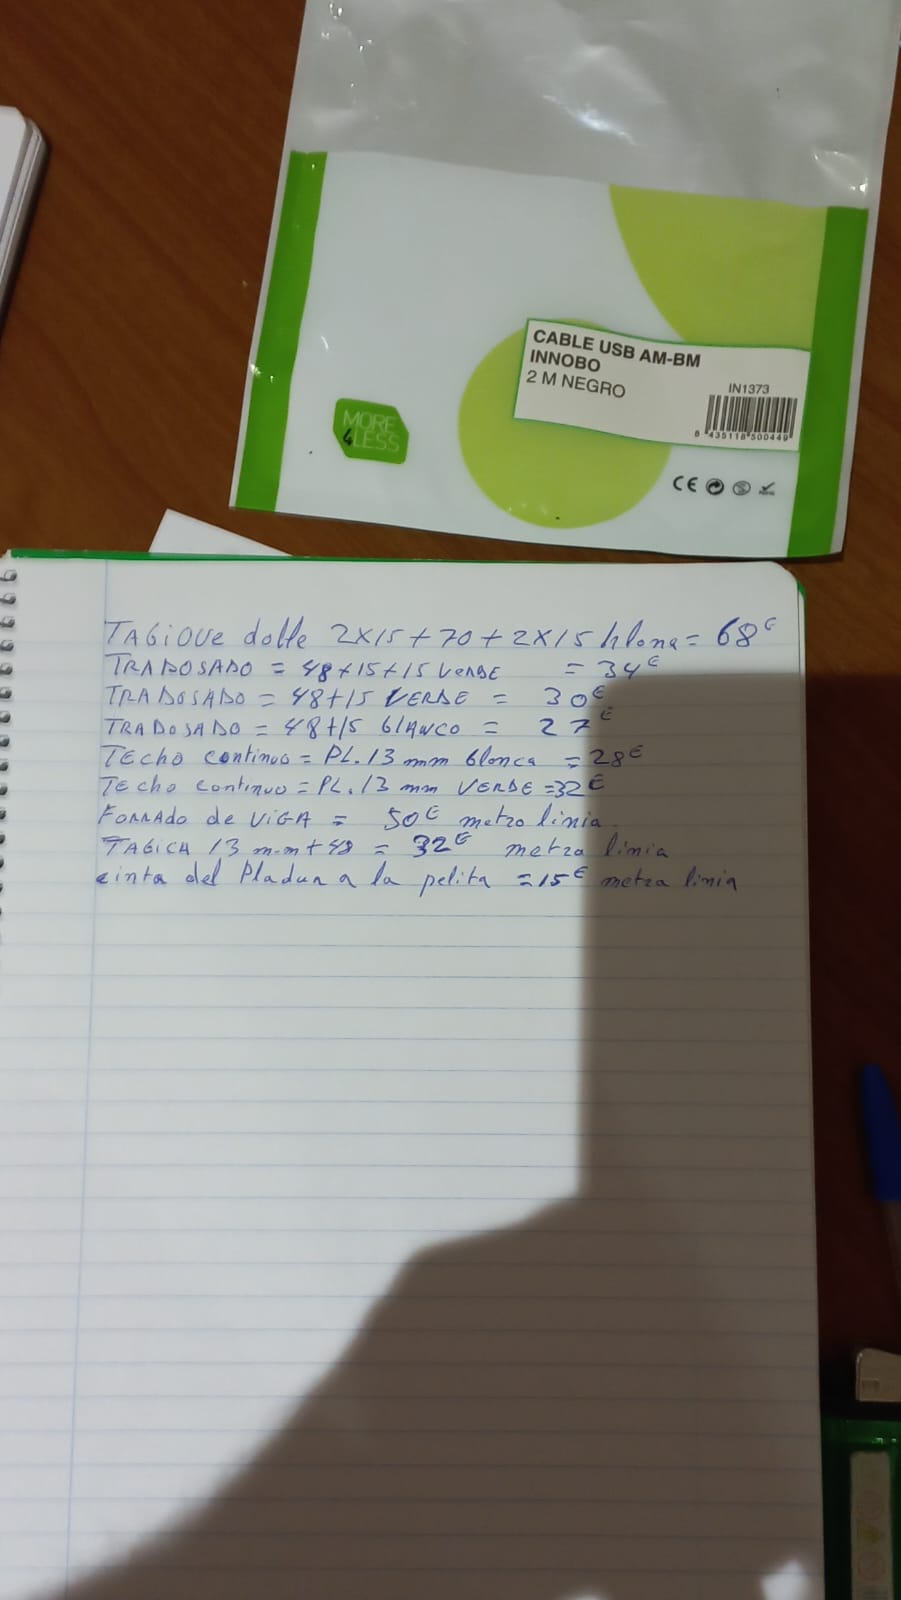 CABLE USB AM-BM
INNOBO
2 M NEGRO
IN1373
8 435118 500449
MORE
4LESS
CE
TAGIQUE dolle 2X15+70+2X15 blona = 68€
TRADOSADO = 48+15+15 VERDE = 34€
TRADOSADO = 48+15 VERDE = 30€
TRADOSADO = 48+15 blAWCO = 27€
TEcho continuo = PL.13 mm blonca = 28€
TEcho continuo = PL.13 mm VERDE = 32€
FORRADO de ViGA = 50€ metro linia
TAGICA 13 m.m+48 = 32€ metra linia
cinta del Pladur a la pelita = 15€ metra linia